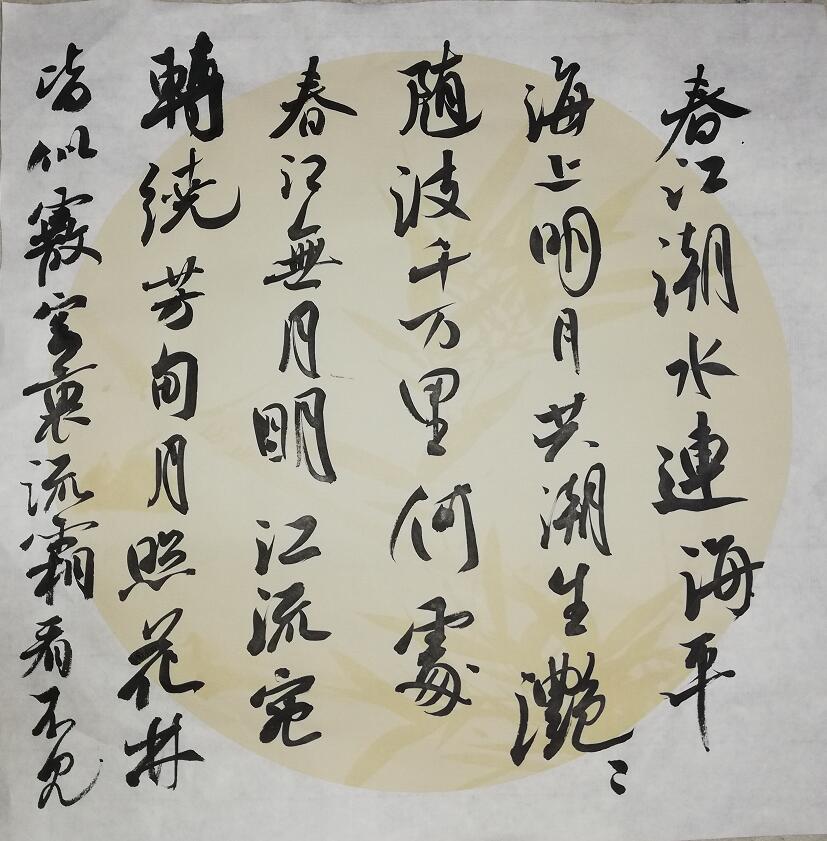 春江潮水連海平
海上明月共潮生灧〻
随波千万里何處
春江無月明江流宛
轉繞芳甸月照花林
皆似霰空裏流霜看不見